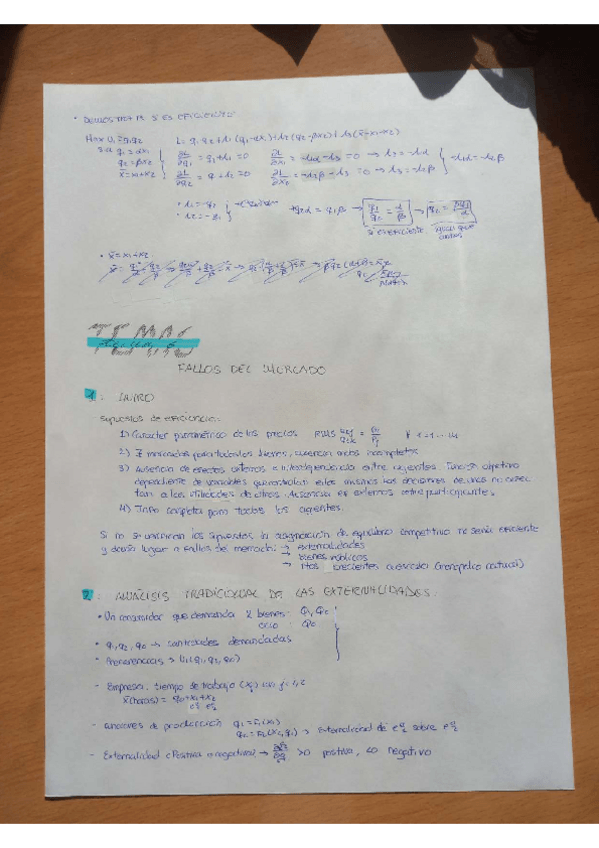 DEMOSTRAR SI ES EFICIENTE:
Max U1 = q1 q2
s.a. q1 = αx1
q2 = βx2
x̄ = x1+x2
L = q1 q2 + λ1(q1-αx1) + λ2(q2-βx2) + λ3(x̄-x1-x2)
∂L/∂q1 = q2+λ1 = 0
∂L/∂x1 = -λ1α-λ3 = 0 → λ3 = -λ1α
∂L/∂q2 = q1+λ2 = 0
∂L/∂x2 = -λ2β-λ3 = 0 → λ3 = -λ2β
-λ1α = -λ2β
• λ1 = -q2
• λ2 = -q1
+q2α = q1β → q1/q2 = α/β →
SI EFICIENTE
igual que antes
• x̄ = x1+x2
TEMA 6
FALLOS DEL MERCADO
1. INTRO
Supuestos de eficiencia:
1) Carácter paramétrico de los precios
2) ∃ mercados para todos los bienes, ausencia mdos incompletos
3) Ausencia de efectos externos e interdependencia entre agentes. Función objetivo
dependiente de variables que controlan ellos mismos. Las decisiones de unos no afec-
tan a las utilidades de otros. Ausencia ef externos entre participantes.
4) Info completa para todos los agentes.
Si no se cumplieran los supuestos la asignación de equilibrio competitivo no sería eficiente
y daría lugar a fallos de mercado: → externalidades
→ bienes públicos
→ rtos crecientes a escala (monopolio natural)
2. ANÁLISIS TRADICIONAL DE LAS EXTERNALIDADES.
• Un consumidor que demanda 2 bienes: Q1, Q2
ocio: Q0
• q1, q2, q0 → cantidades demandadas
• Preferencias → U(q1, q2, q0)
- Empresa: tiempo de trabajo (xj) con j=1,2
x̄(horas) = q0+x1+x2
- Funciones de producción q1 = F1(x1)
q2 = F2(x2, q1) → Externalidad de e1 sobre e2
- Externalidad (Positiva o negativa) → >0 positiva, <0 negativo